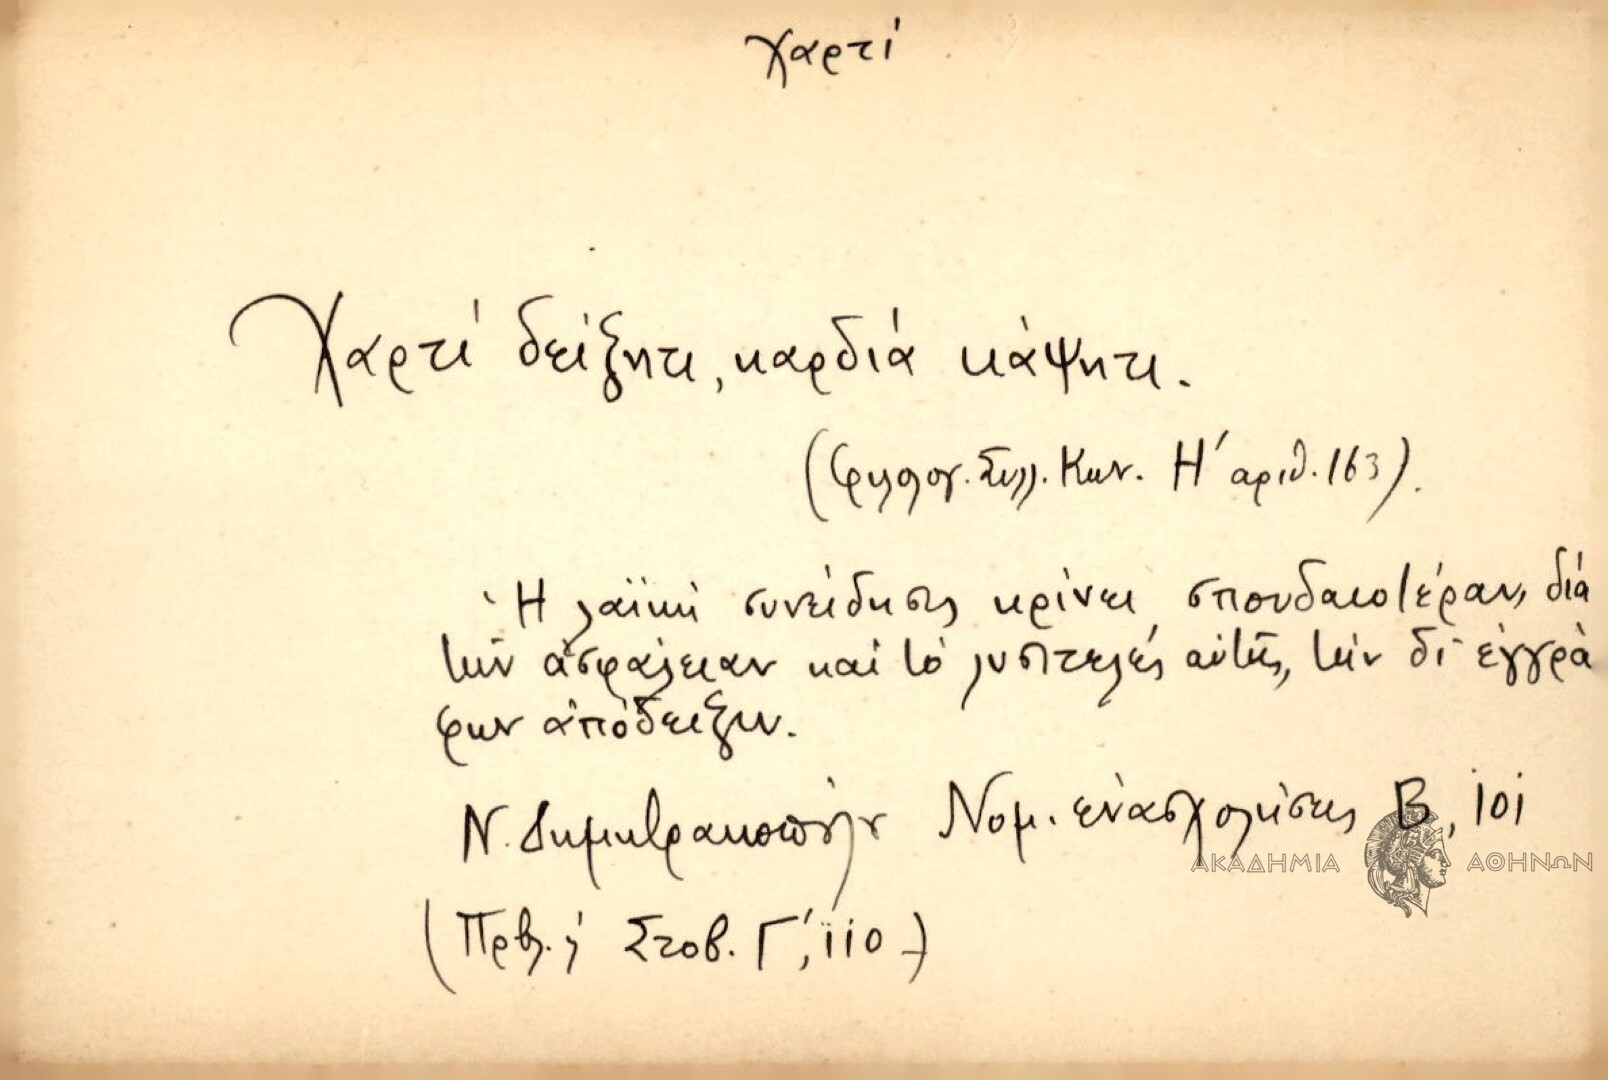 Χαρτί
Χαρτί δείξητε, καρδιά κάψητε.
(Φιλολογ. Συλλ. Κων. Η΄ αριθ. 163).
Ἡ λαϊκή συνείδησις κρίνει σπουδαιοτέραν, διά
τήν ἀσφάλειαν καί τό λυσιτελές αὐτῆς, τήν δι' ἐγγρά
φων ἀπόδειξιν.
Ν. Δημητρακοπούλου Νομ. ἐνασχολήσεις Β, 101
(Πρβλ. Στοβ. Γ΄, 110)
ΑΚΑΔΗΜΙΑ ΑΘΗΝΩΝ